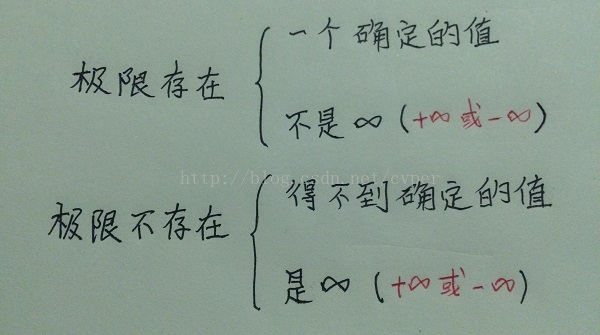 一个确定的值
极限存在
不是∞(+∞或-∞)
http://blog.csdn.net/cyper
得不到确定的值
极限不存在
是∞(+∞或-∞)